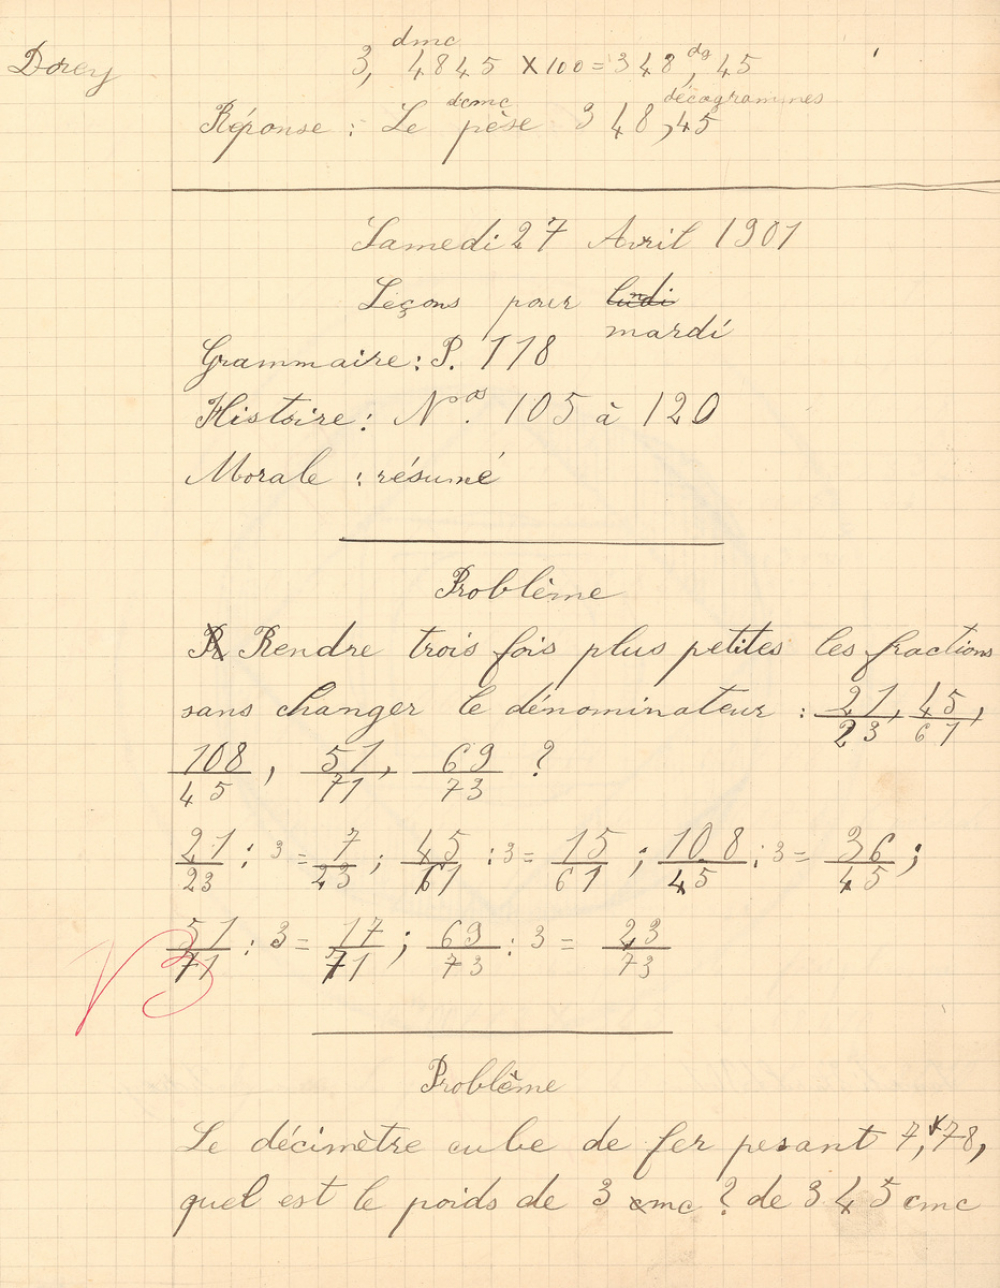 Dorey
3, dmc 4845 × 100 = 348, dg 45
Réponse : Le dcmc pèse 348,45 décagrammes
Samedi 27 Avril 1901
Leçons pour lundi
mardi
Grammaire : P. 118
Histoire : Nos. 105 à 120
Morale : résumé
Problème
R Rendre trois fois plus petites les fractions
sans changer le dénominateur : 21/23, 45/61,
108/45, 51/71, 69/73 ?
21/23 : 3 = 7/23 ; 45/61 : 3 = 15/61 ; 108/45 : 3 = 36/45 ;
51/71 : 3 = 17/71 ; 69/73 : 3 = 23/73
Problème
Le décimètre cube de fer pesant 7,78,
quel est le poids de 3 cmc ? de 345 cmc